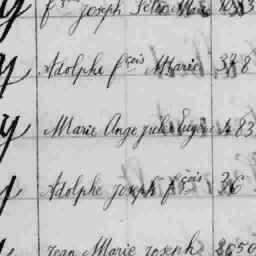 y fçois Joseph
y Adolphe fçois Marie 378
y Marie Ange Jules Eugène 483
y Adolphe Joseph fçois 36
y Jean Marie Joseph 2650